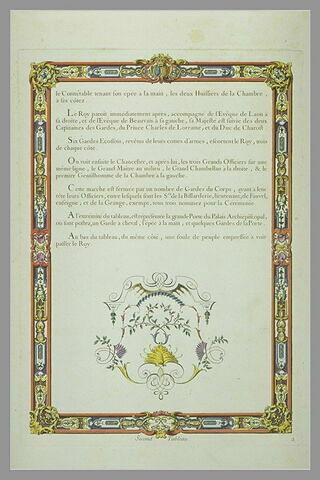 le Connétable tenant son epée à la main, les deux Huissiers de la Chambre
à ses côtez
Le Roy paroit immediatement après, accompagné de l'Evêque de Laon à
sa droite, et de l'Evêque de Beauvais à sa gauche, sa Majesté est suivie des deux
Capitaines des Gardes, du Prince Charles de Lorraine, et du Duc de Charost
Six Gardes Ecossois, revétus de leurs cottes d'armes, escortent le Roy, trois
de chaque côté
On voit ensuite le Chancelier, et après lui, les trois Grands Officiers sur une
même ligne, le Grand Maitre au milieu, le Grand Chambellan à la droite, & le
premier Gentilhomme de la Chambre à la gauche.
Cette marche est fermée par un nombre de Gardes du Corps, ayant à leur
tête leurs Officiers, entre lesquels sont les Srs de la Billarderie, lieutenant, de
exempt, et de la Grange, exempt, tous trois nommez pour la Ceremonie
A l'extrémité du tableau, est représentée la grande Porte du Palais Archiepiscopal,
où sont postez, un Garde à cheval, l'epée à la main, et quelques Gardes de la Porte.
Au bas du tableau, du même côté, une foule de peuple empressée à voir
passer le Roy
Second Tableau